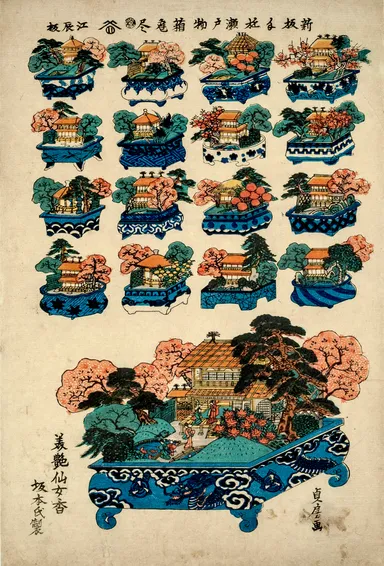 新板手遊瀬戸物箱庭尽 極 江辰板
貞房画
美艶仙女香
坂本氏製